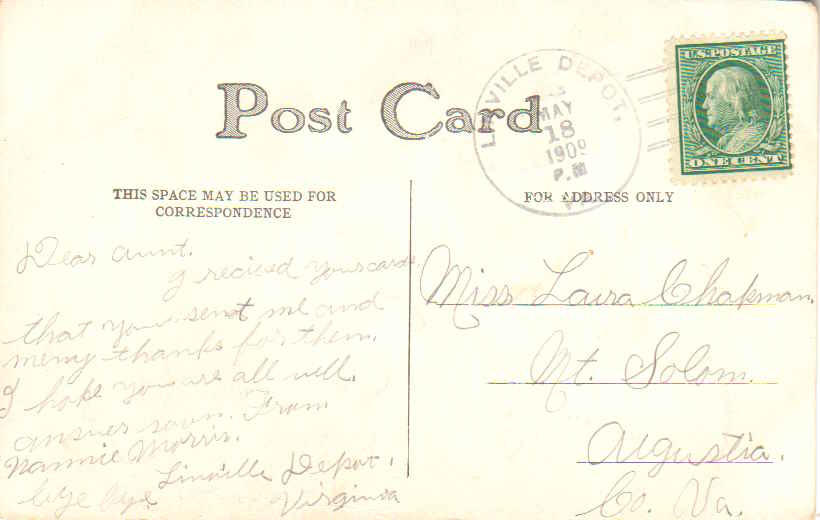 Post Card
LINVILLE DEPOT,
MAY
18
1909
P.M
VA.
U.S. POSTAGE
ONE CENT
THIS SPACE MAY BE USED FOR
CORRESPONDENCE
FOR ADDRESS ONLY
Dear aunt.
I recieved your cards
that you sent me and
meny thanks for them.
I hope you are all well.
answer soon. From
Nannie Morris.
Linville Depot,
bye bye. Virginia
Miss Laura Chapman.
Mt. Solom.
Augustia.
Co. Va.